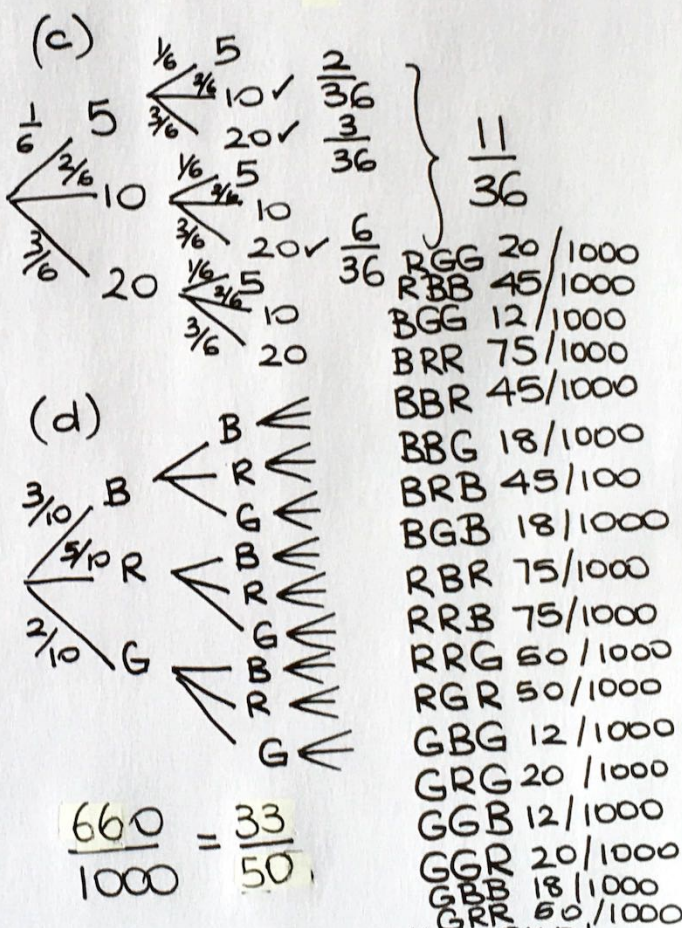 (c)
1/6 5
1/6 5
2/6 10 ✓ 2/36
3/6 20 ✓ 3/36
2/6 10
1/6 5
2/6 10
3/6 20 ✓ 6/36
3/6 20
1/6 5
2/6 10
3/6 20
11/36
(d)
3/10 B
B
R
G
5/10 R
B
R
G
2/10 G
B
R
G
660/1000 = 33/50
RGG 20/1000
RBB 45/1000
BGG 12/1000
BRR 75/1000
BBR 45/1000
BBG 18/1000
BRB 45/100
BGB 18/1000
RBR 75/1000
RRB 75/1000
RRG 50/1000
RGR 50/1000
GBG 12/1000
GRG 20/1000
GGB 12/1000
GGR 20/1000
GBB 18/1000
GRR 50/1000